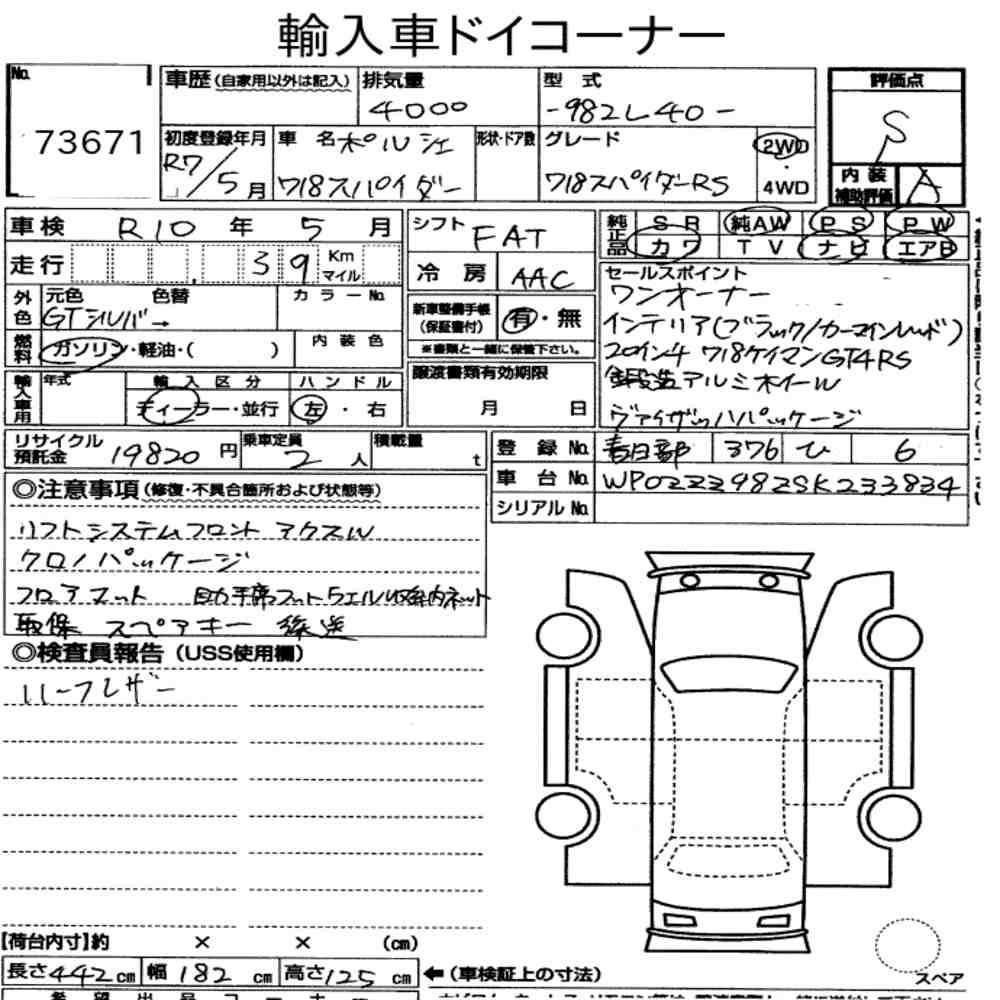 輸入車ドイコーナー
No. 73671
車歴(自家用以外は記入) 排気量 4000 型式 -982L40-
初度登録年月 R7/5月 車名 ポルシェ 718スパイダー 形状・ドア数 グレード 718スパイダーRS 2WD・4WD
評価点 S
内装補助評価 A
車検 R10年5月
走行 39 Km マイル
シフト FAT
冷房 AAC
純正品 SR 純AW PS PW
カワ TV ナビ エアB
外色 元色 色替 GTシルバー カラーNo.
燃料 ガソリン・軽油・( ) 内装色
新車整備手帳(保証書付) 有・無
※書類と一緒に保管下さい。
輸入車用 年式 輸入区分 ディーラー・並行 ハンドル 左・右
譲渡書類有効期限 月 日
セールスポイント
ワンオーナー
インテリア(ブラック/カーマインレッド)
20インチ 718ケイマンGT4RS
鍛造アルミホイール
ヴァイザッハパッケージ
リサイクル預託金 19820円 乗車定員 2人 積載量 t
登録No. 春日部 376 ひ 6
車台No. WP0ZZZ98ZSK233834
シリアルNo.
◎注意事項(修復・不具合箇所および状態等)
リフトシステムフロントアクスル
クロノパッケージ
フロアマット 助手席フットウェル収納ネット
取保 スペアキー 後送
◎検査員報告(USS使用欄)
ハーフレザー
【荷台内寸】約 × × (cm)
長さ442cm 幅182cm 高さ125cm ←(車検証上の寸法)
スペア